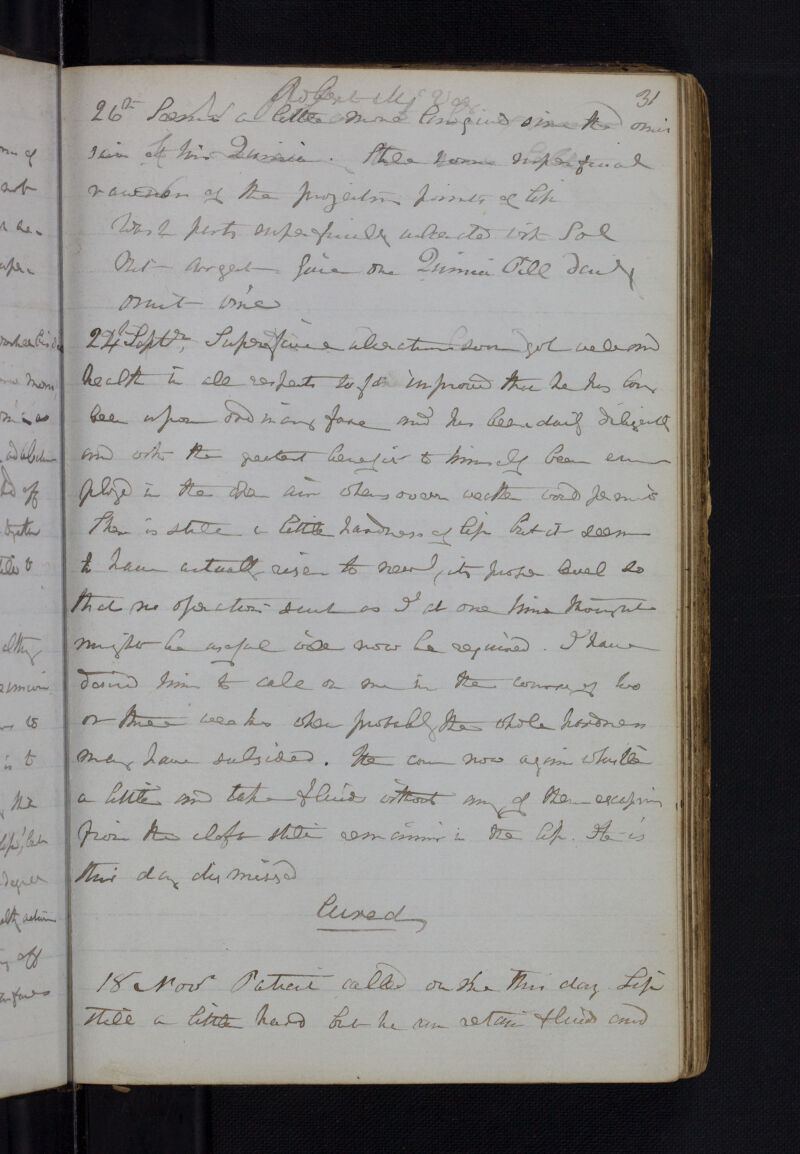 31
Robert Mc
26th Seem'd a little more languid since the omis
sion of his Quinine. Still some superficial
rawness of the projecting points of lip
Wash parts superficially ulcerated with Sol
Nit Argent Give one Quinine Pill Daily
omit wine
24th Septr. Superficial ulceration soon got well and
health in all respects so far improved that he has long
been upon ordinary fare and has been daily diligently
and with the greatest benefit to himself been em
ployed in the open air whensoever weather would permit
There is still a little hardness of lip but it seems
to have actually risen to nearly its proper level so
that no operation such as I at one time thought
might be useful will now be required. I have
desired him to call on me in the course of two
or three weeks when probably the whole hardness
may have subsided. He can now again whistle
a little and take fluids without any of them escaping
from the cleft still remaining in the lip. He is
this day dismissed
Cured
18 Novr Patient called on me this day Lip
still a little hard but he can retain fluids and